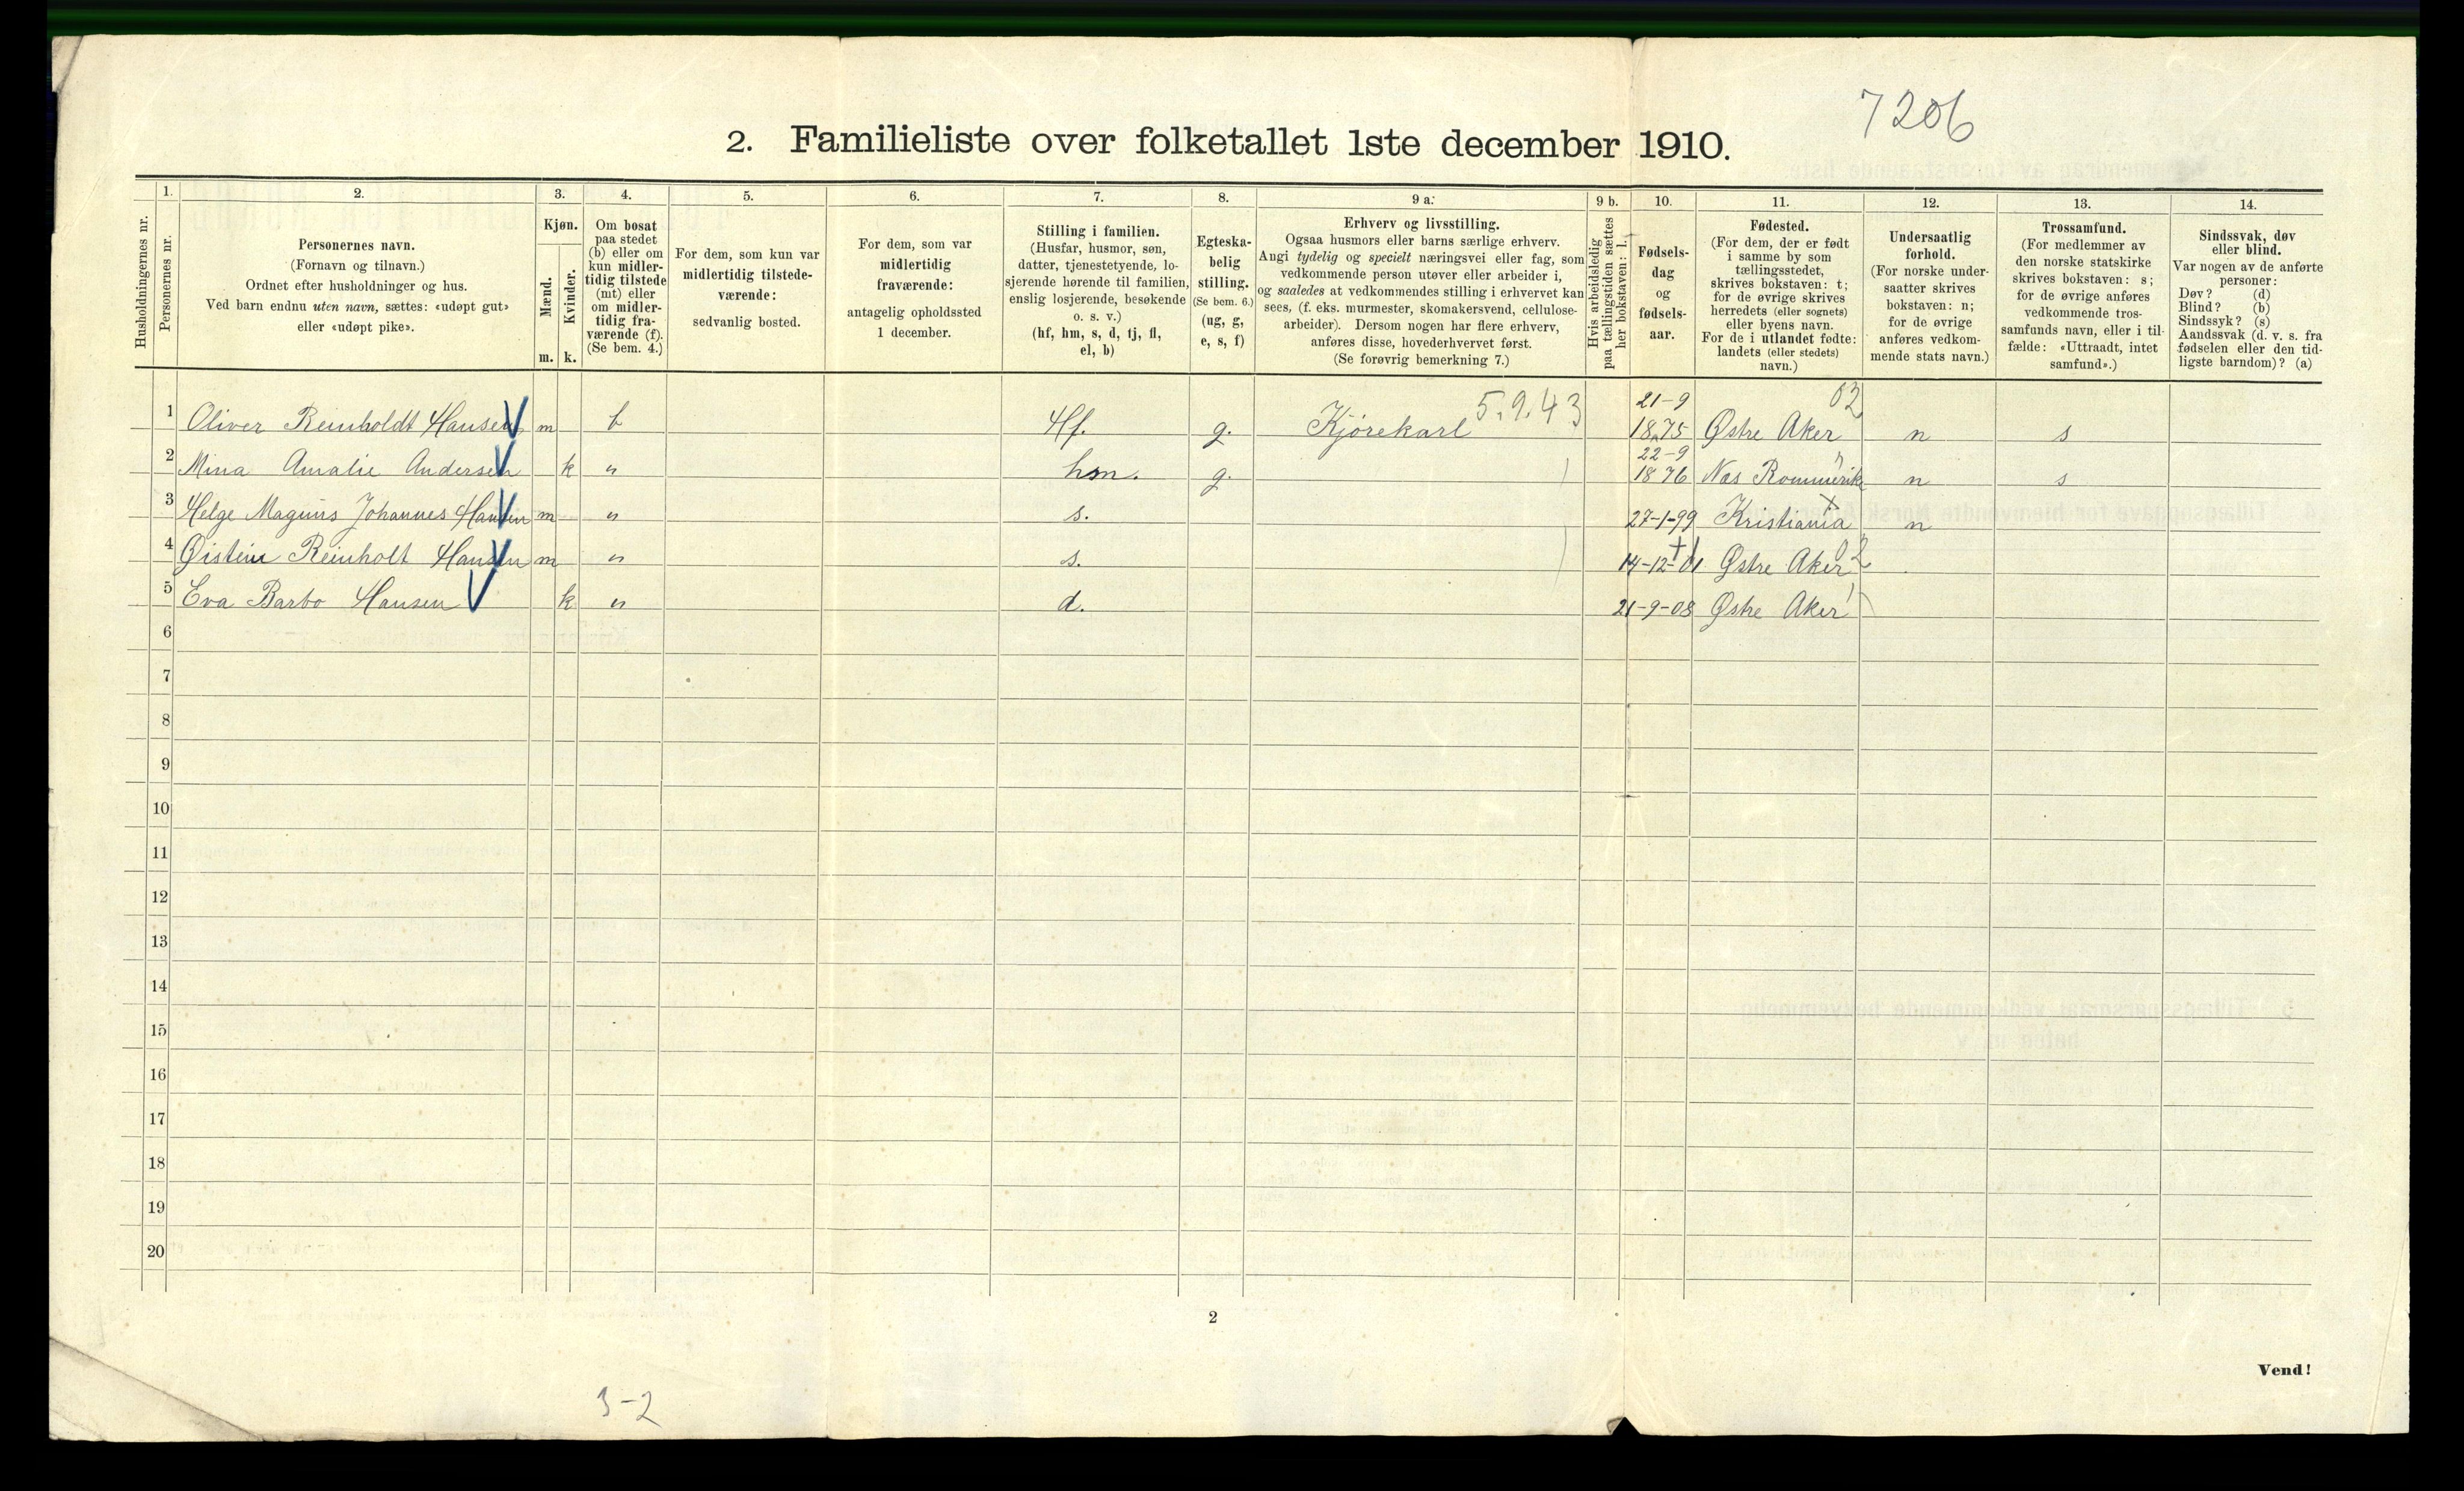 7206
2. Familieliste over folketallet 1ste december 1910.
Husholdningernes nr.
1.
Personernes nr.
2.
Personernes navn.
(Fornavn og tilnavn.)
Ordnet efter husholdninger og hus.
Ved barn endnu uten navn, sættes: «udøpt gut»
eller «udøpt pike».
3.
Kjøn.
Mænd.
m.
Kvinder.
k.
4.
Om bosat
paa stedet
(b) eller om
kun midler-
tidig tilstede
(mt) eller
om midler-
tidig fra-
værende (f).
(Se bem. 4.)
5.
For dem, som kun var
midlertidig tilstede-
værende:
sedvanlig bosted.
6.
For dem, som var
midlertidig
fraværende:
antagelig opholdssted
1 december.
7.
Stilling i familien.
(Husfar, husmor, søn,
datter, tjenestetyende, lo-
sjerende hørende til familien,
enslig losjerende, besøkende
o. s. v.)
(hf, hm, s, d, tj, fl,
el, b)
8.
Egteska-
belig
stilling.
(Se bem. 6.)
(ug, g,
e, s, f)
9 a.
Erhverv og livsstilling.
Ogsaa husmors eller barns særlige erhverv.
Angi tydelig og specielt næringsvei eller fag, som
vedkommende person utøver eller arbeider i,
og saaledes at vedkommendes stilling i erhvervet kan
sees, (f. eks. murmester, skomakersvend, cellulose-
arbeider). Dersom nogen har flere erhverv,
anføres disse, hovederhvervet først.
(Se forøvrig bemerkning 7.)
9 b.
Hvis arbeidsledig
paa tællingstiden sættes
her bokstaven: l.
10.
Fødsels-
dag
og
fødsels-
aar.
11.
Fødested.
(For dem, der er født
i samme by som
tællingsstedet,
skrives bokstaven: t;
for de øvrige skrives
herredets (eller sognets)
eller byens navn.
For de i utlandet fødte:
landets (eller stedets)
navn.)
12.
Undersaatlig
forhold.
(For norske under-
saatter skrives
bokstaven: n;
for de øvrige
anføres vedkom-
mende stats navn.)
13.
Trossamfund.
(For medlemmer av
den norske statskirke
skrives bokstaven: s;
for de øvrige anføres
vedkommende tros-
samfunds navn, eller i til-
fælde: «Uttraadt, intet
samfund».)
14.
Sindssvak, døv
eller blind.
Var nogen av de anførte
personer:
Døv? (d)
Blind? (b)
Sindssyk? (s)
Aandssvak (d. v. s. fra
fødselen eller den tid-
ligste barndom)? (a)
1 Oliver Reinholdt Hansen m b Hf. g. Kjørekarl 5.9.43 21-9 1875 Østre Aker 02 n s
2 Mina Amalie Andersen k " hm. g. 22-9 1876 Nes Rommerike " n s
3 Helge Magnus Johannes Hansen m " s. 27-1-99 Kristiania n
4 Øistein Reinholt Hansen m " s. 14-12-01 Østre Aker 02
5 Eva Barbo Hansen k " d. 21-9-08 Østre Aker
6
7
8
9
10
11
12
13
14
15
16
17
18
19
20
2
Vend!
3-2